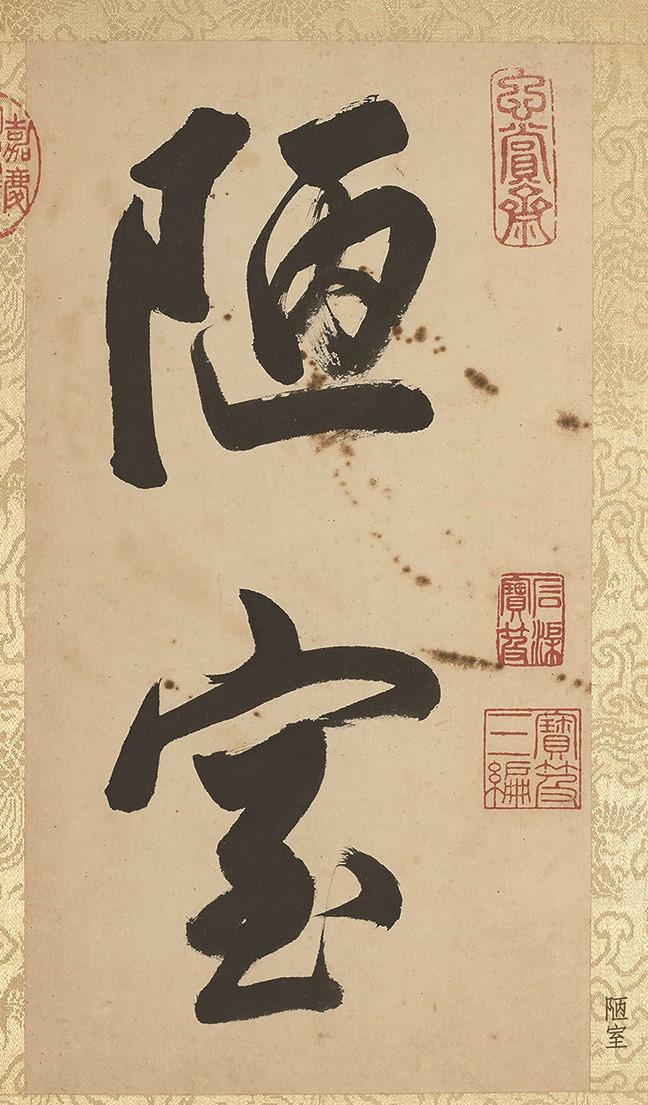 陋室
玄賞齋
石渠
寶笈
寶笈
三編
陋室
嘉慶